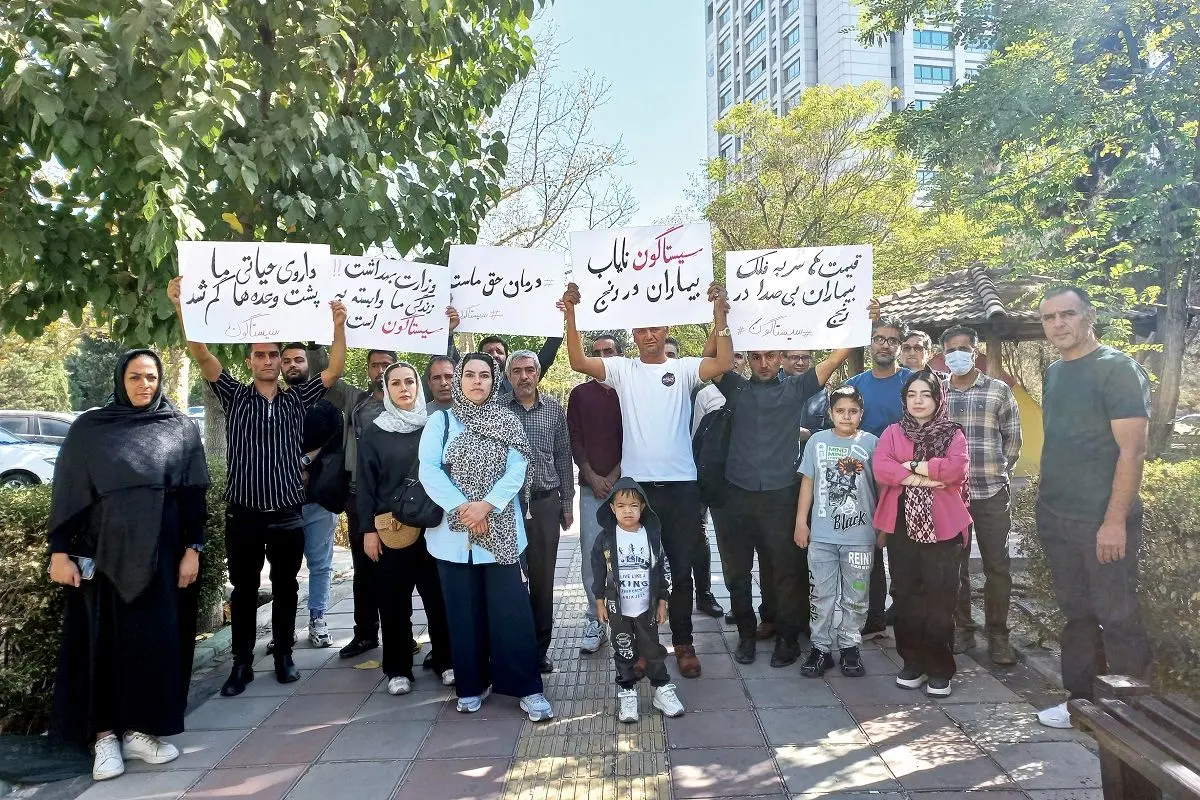 داروی حیاتی ما
پشت وعده‌ها گم شد
سیستاگون
وزارت بهداشت !!
زندگی ما وابسته به
سیستاگون است
درمان حق ماست
#سیستاگون
سیستاگون نایاب
بیماران در رنج
قیمت ها سر به فلک
بیماران بی صدا در
رنج
#سیستاگون#
MIND MIND
Black
KING
REI